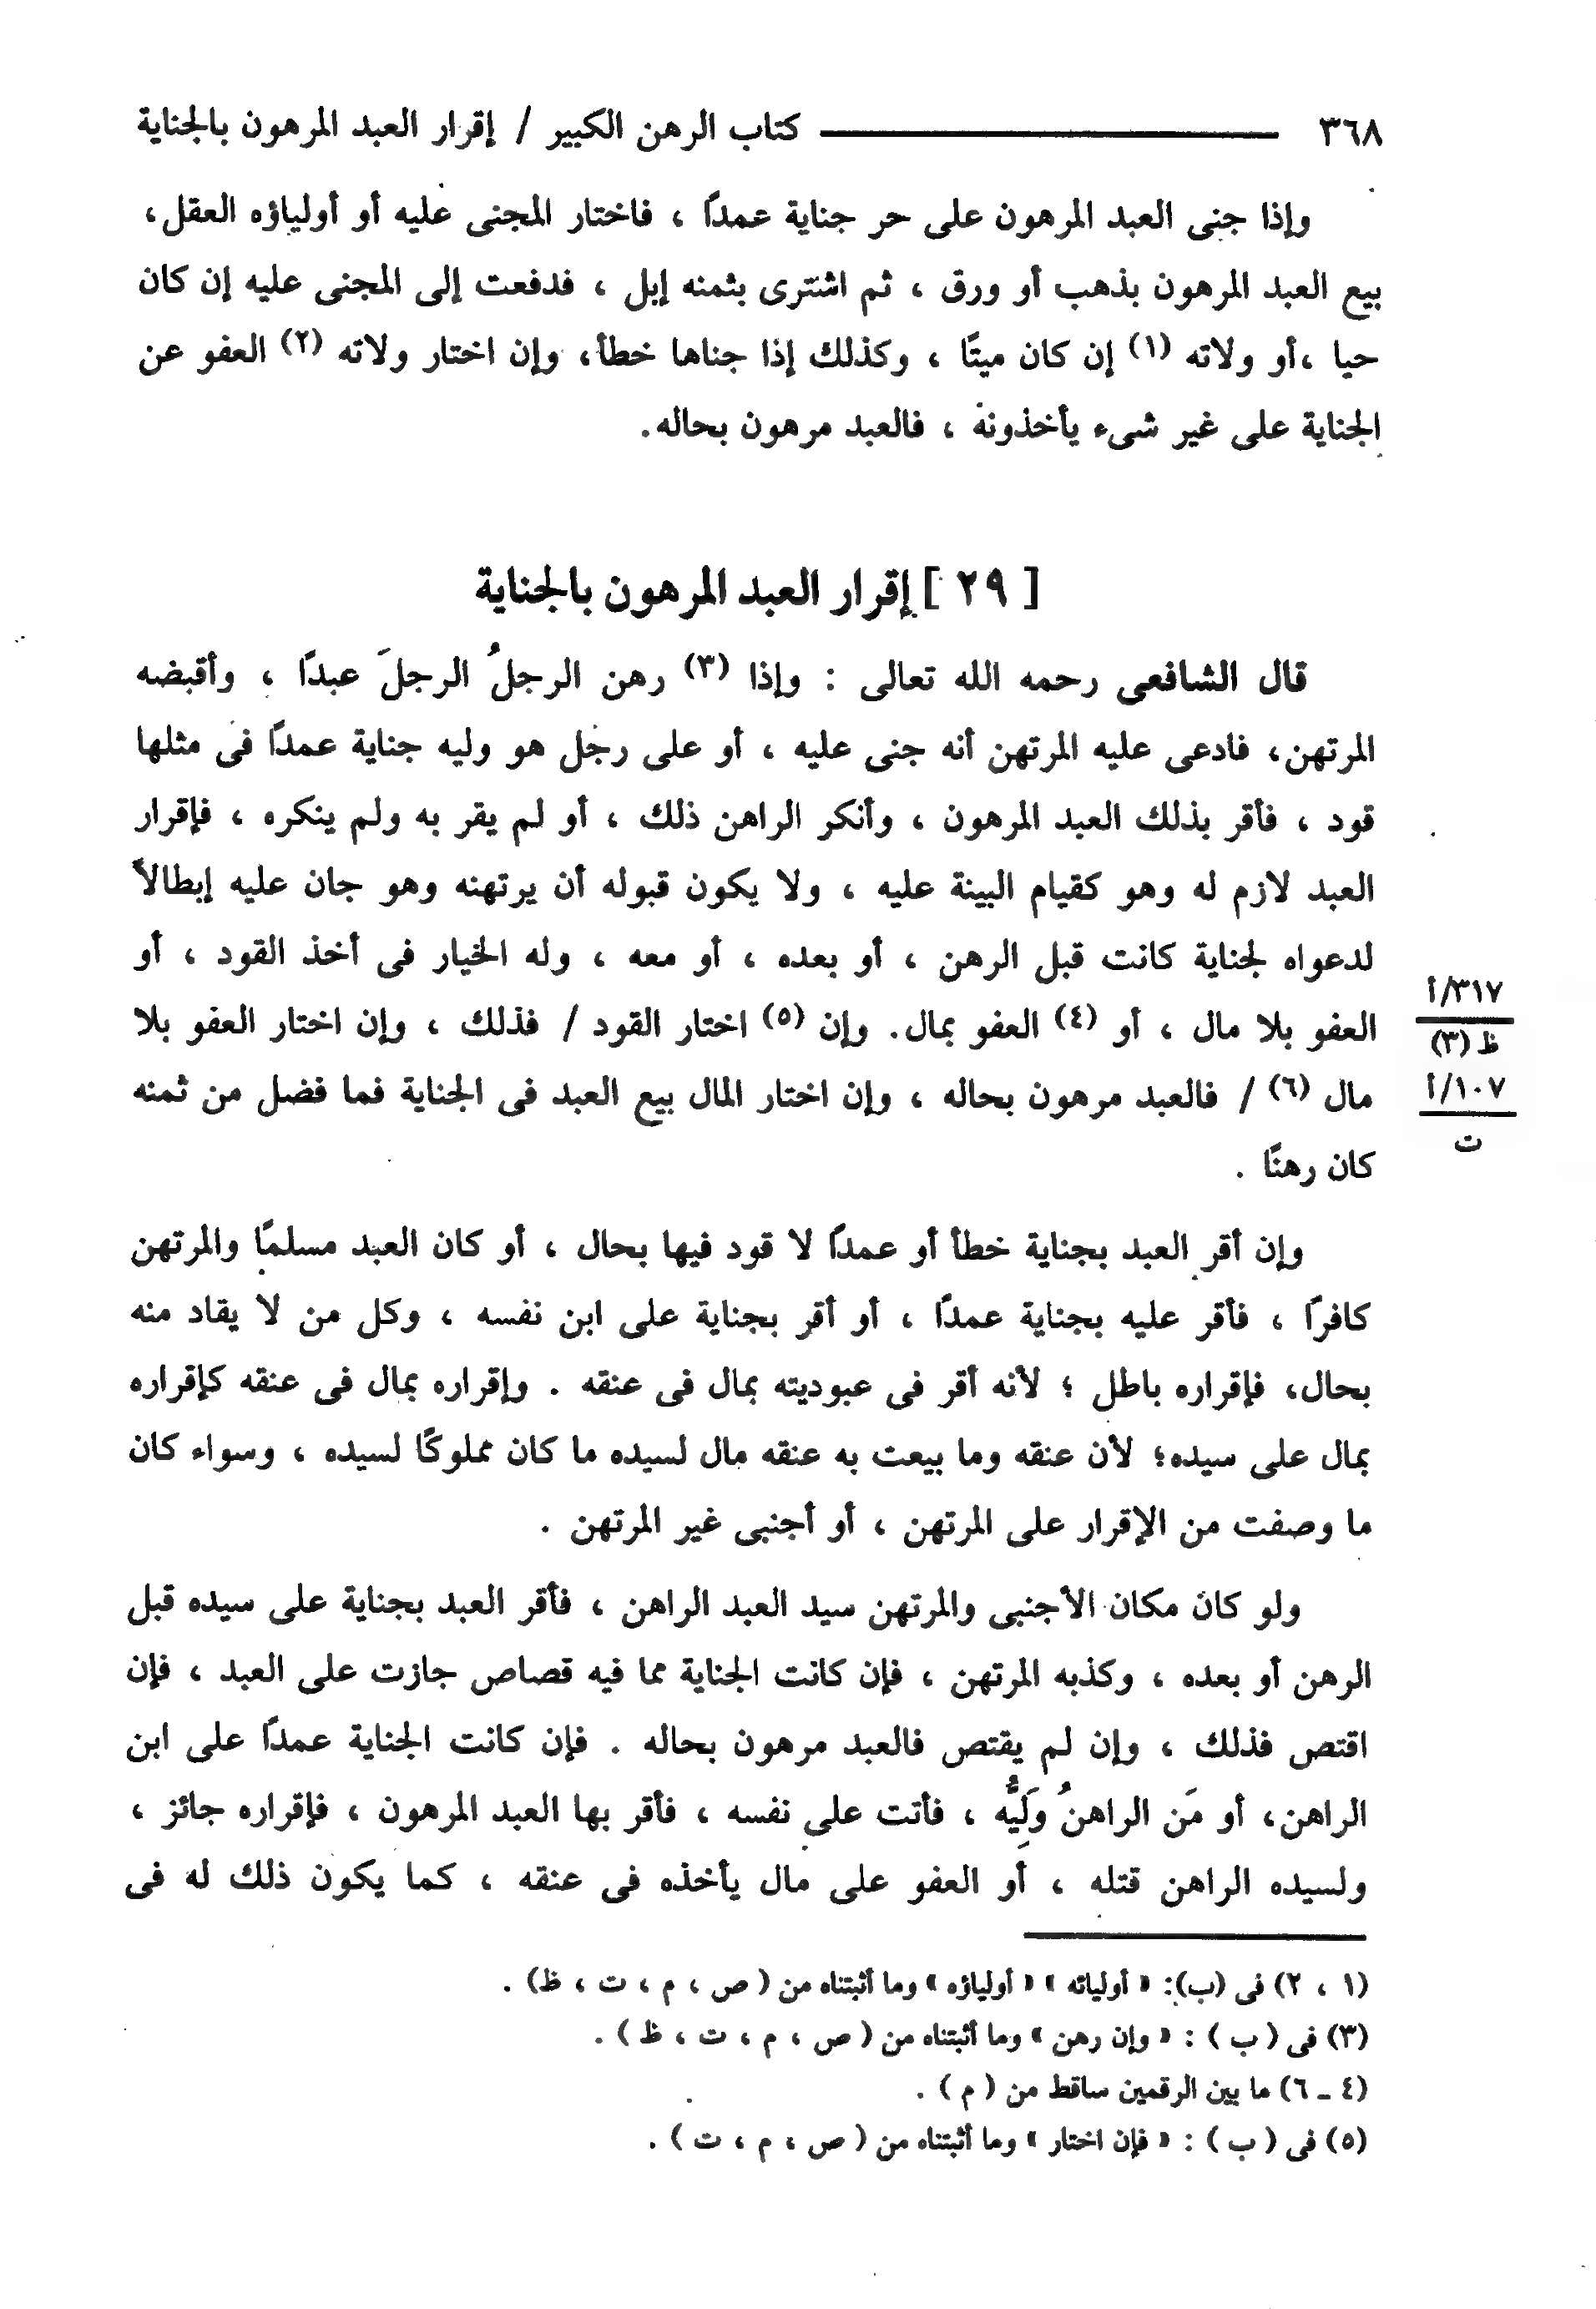 ٣٦٨ ــــــ كتاب الرهن الكبير / إقرار العبد المرهون بالجناية
وإذا جنى العبد المرهون على حر جناية عمدًا ، فاختار المجنى عليه أو أولياؤه العقل،
بيع العبد المرهون بذهب أو ورق ، ثم اشترى بثمنه إبل ، فدفعت إلى المجنى عليه إن كان
حيا ،أو ولاته (١) إن كان ميتًا ، وكذلك إذا جناها خطأ، وإن اختار ولاته (٢) العفو عن
الجناية على غير شىء يأخذونه ، فالعبد مرهون بحاله.
[ ٢٩ ] إقرار العبد المرهون بالجناية
قال الشافعى رحمه الله تعالى : وإذا (٣) رهن الرجلُ الرجلَ عبدًا ، وأقبضه
المرتهن، فادعى عليه المرتهن أنه جنى عليه ، أو على رجل هو وليه جناية عمدًا فى مثلها
قود ، فأقر بذلك العبد المرهون ، وأنكر الراهن ذلك ، أو لم يقر به ولم ينكره ، فإقرار
العبد لازم له وهو كقيام البينة عليه ، ولا يكون قبوله أن يرتهنه وهو جان عليه إبطالاً
لدعواه لجناية كانت قبل الرهن ، أو بعده ، أو معه ، وله الخيار فى أخذ القود ، أو
العفو بلا مال ، أو (٤) العفو بمال. وإن (٥) اختار القود / فذلك ، وإن اختار العفو بلا
مال (٦) / فالعبد مرهون بحاله ، وإن اختار المال بيع العبد فى الجناية فما فضل من ثمنه
كان رهنًا .
٣١٧/أ
ظ (٣)
١٠٧/أ
ت
وإن أقر العبد بجناية خطأ أو عمدًا لا قود فيها بحال ، أو كان العبد مسلمًا والمرتهن
كافرًا ، فأقر عليه بجناية عمدًا ، أو أقر بجناية على ابن نفسه ، وكل من لا يقاد منه
بحال، فإقراره باطل ؛ لأنه أقر فى عبوديته بمال فى عنقه . وإقراره بمال فى عنقه كإقراره
بمال على سيده؛ لأن عنقه وما بيعت به عنقه مال لسيده ما كان مملوكًا لسيده ، وسواء كان
ما وصفت من الإقرار على المرتهن ، أو أجنبى غير المرتهن .
ولو كان مكان الأجنبى والمرتهن سيد العبد الراهن ، فأقر العبد بجناية على سيده قبل
الرهن أو بعده ، وكذبه المرتهن ، فإن كانت الجناية مما فيه قصاص جازت على العبد ، فإن
اقتص فذلك ، وإن لم يقتص فالعبد مرهون بحاله . فإن كانت الجناية عمدًا على ابن
الراهن، أو مَن الراهنُ وَلِيُّه ، فأتت على نفسه ، فأقر بها العبد المرهون ، فإقراره جائز ،
ولسيده الراهن قتله ، أو العفو على مال يأخذه فى عنقه ، كما يكون ذلك له فى
(١ ، ٢) فى (ب): « أوليائه » « أولياؤه » وما أثبتناه من ( ص ، م ، ت ، ظ) .
(٣) فى ( ب ) : « وإن رهن » وما أثبتناه من ( ص ، م ، ت ، ظ ) .
(٤ ـ ٦) ما بين الرقمين ساقط من ( م ) .
(٥) فى ( ب ) : « فإن اختار » وما أثبتناه من ( ص ، م ، ت ) .